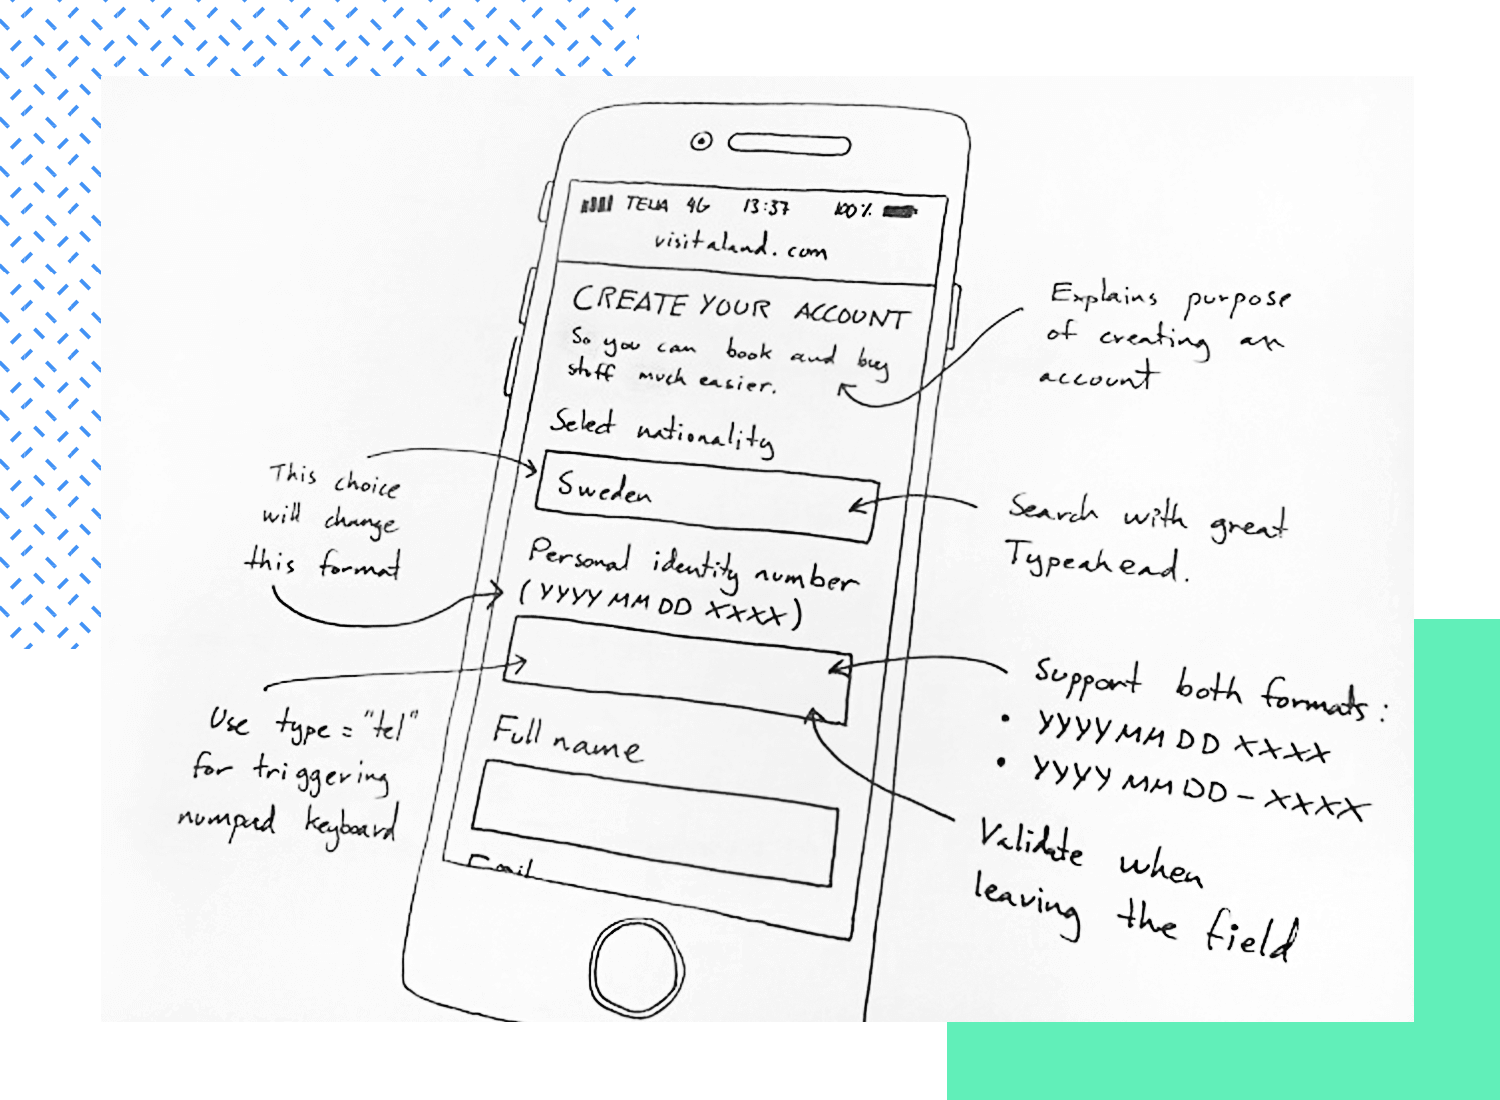 TELIA 4G 13:37 100%
visitaland.com
CREATE YOUR ACCOUNT
So you can book and buy
stuff much easier.
Select nationality
Sweden
Personal identity number
(YYYYMMDD XXXX)
Full name
Email
This choice
will change
this format
Use type="tel"
for triggering
numpad keyboard
Explains purpose
of creating an
account
Search with great
Typeahead.
Support both formats:
• YYYYMMDD XXXX
• YYYYMMDD-XXXX
Validate when
leaving the field